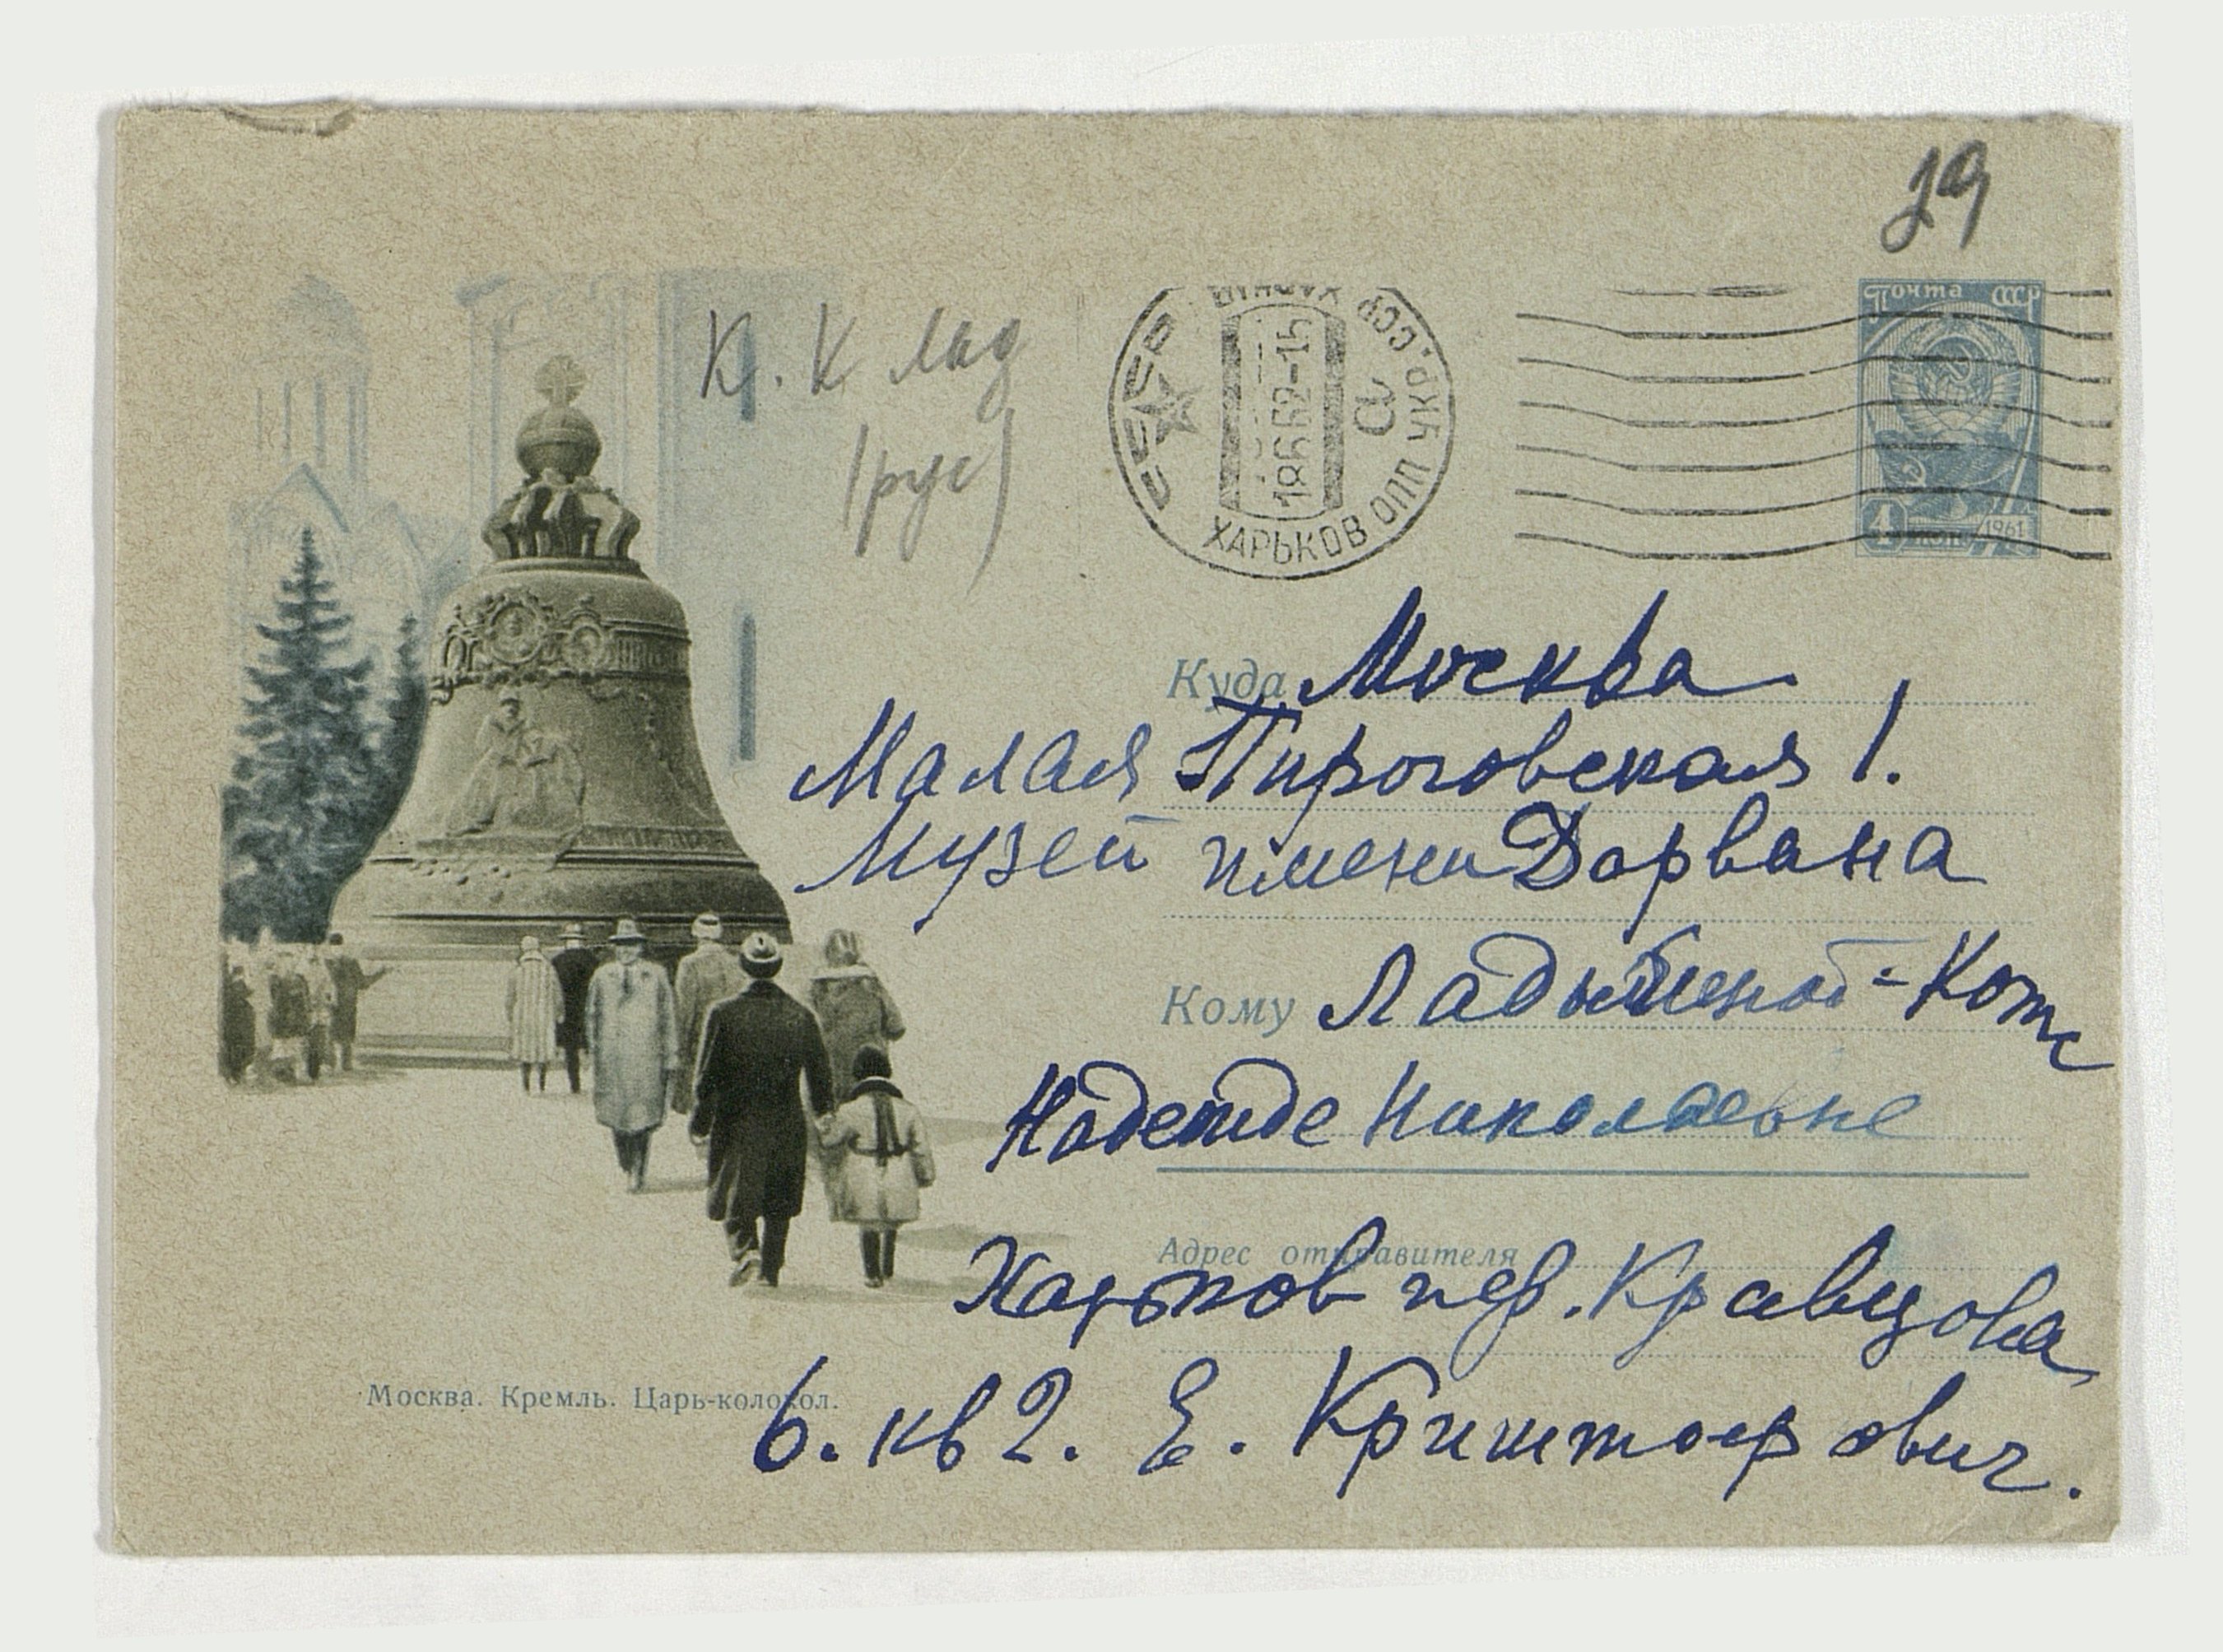 29
Почта СССР
4 коп 1961
К. К Лад
(рус)
СССР
ХАРЬКОВ ОПП УКР. ССР
18662-15
Куда Москва
Малая Пироговская 1.
Музей имени Дарвана
Кому Ладыгиной-Котс
Надежде Николаевне
Адрес отправителя
Харьков пер. Кравцова
6. кв 2. Е. Криштофович.
Москва. Кремль. Царь-колокол.